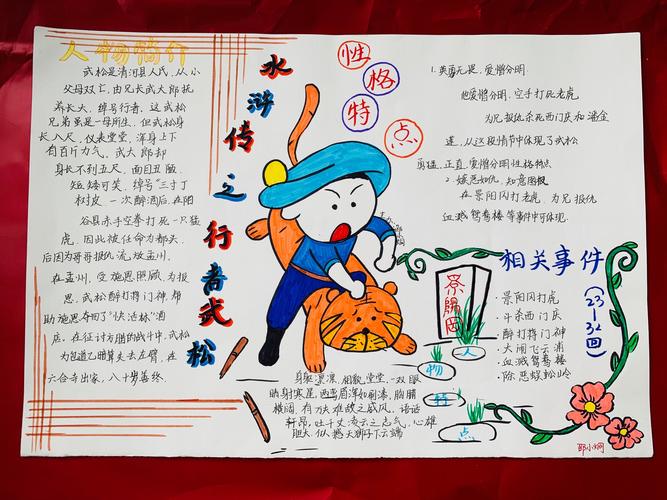 人物简介
武松是清河县人氏,从小
父母双亡,由兄长武大郎抚
养长大,绰号行者,这武松
兄弟虽是一母所生,但武松身
长八尺,仪表堂堂,浑身上下
有百斤力气,武大郎却
身长不到五尺,面目丑陋,
短矮可笑,绰号"三寸丁
树皮",一次醉酒后,在阳
谷县赤手空拳打死一只猛
虎,因此被任命为都头,
后因为哥哥报仇流放孟州,
在孟州,受施恩照顾,为报
恩,武松醉打蒋门神,帮
助施恩夺回了"快活林"酒
店,在征讨方腊的战斗中,武松
为包道乙暗算失去左臂,在
六合寺出家,八十岁善终。
水浒传之行者武松
性格特点
1.英勇无畏,爱憎分明
他爱憎分明,空手打死老虎
为兄报仇杀死西门庆和潘金
莲,从这段情节中体现了武松
勇猛,正直,爱憎分明性格特点
2.嫉恶如仇,知恩图报
在景阳冈打老虎,为兄报仇
血溅鸳鸯楼等事件中可体现.
相关事件
(23-32回)
·景阳冈打虎
·斗杀西门庆
·醉打蒋门神
·大闹飞云浦
·血溅鸳鸯楼
·除恶蜈蚣岭
景阳冈
人物特点
身躯凛凛,相貌堂堂,一双眼
眉浑如刷漆,胸脯
横阔,有万夫难敌之威风,语话
轩昂,吐千丈凌云之志气,心雄
胆大,似撼天狮子下云端